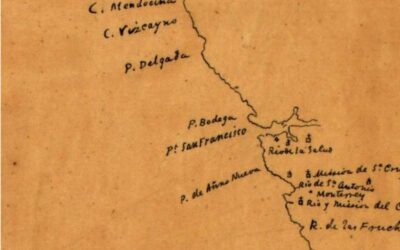 C. Mendocina
C. Vizcayno
P. Delgada
P. Bodega
Pt. San Francisco
Rio de la Salud
P. de Añno Nueva
Mission de Sta Cru
Rio de Sn Antonio
Monterrey
Rio y Mission del C
R. de las Truch